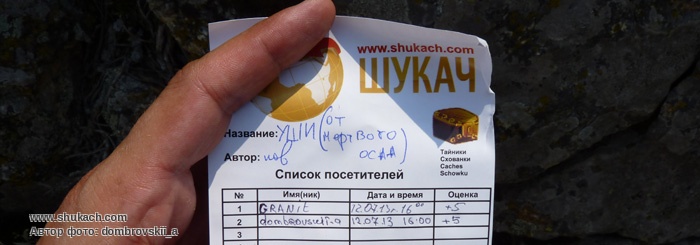 www.shukach.com
ШУКАЧ
Название: УШИ (ОТ
МЕРТВОГО
Автор: ОСЛА)
Тайники
Схованки
Caches
Schowku
Список посетителей
№ Имя(ник) Дата и время Оценка
1 GRANIT 12.07.13г. 16⁰⁰ +5
2 dombrovskii-a 12.07.13 16:00 +5
3
www.shukach.com
Автор фото: dombrovskii_a